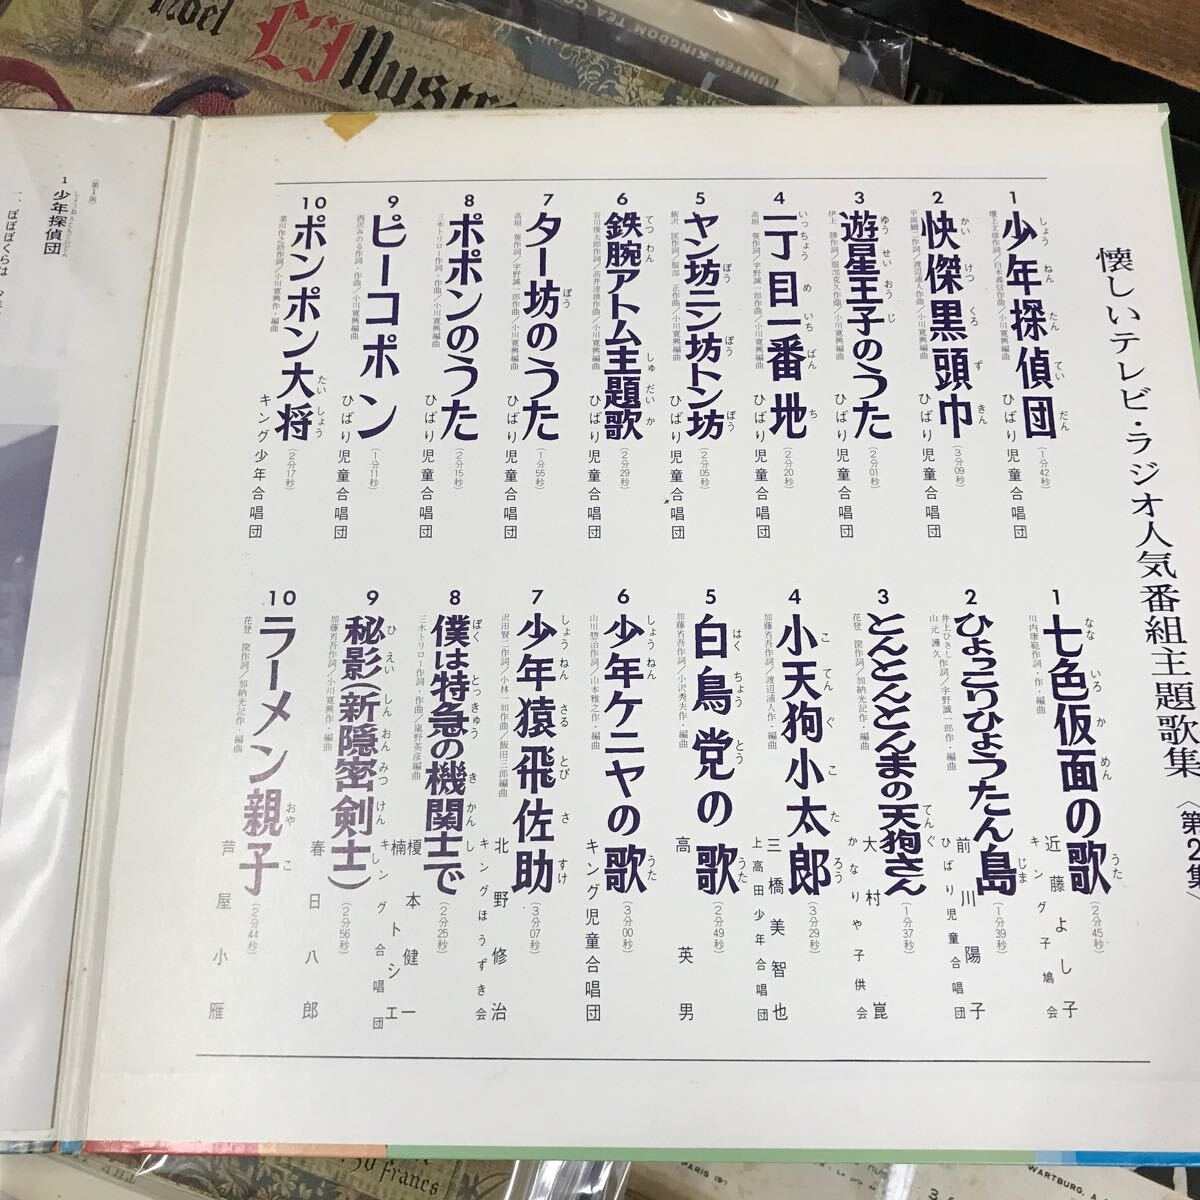 懐しいテレビ・ラジオ人気番組主題歌集〈第2集〉
1 少年探偵団 (1分42秒)
壇上文雄作詞/白木義信作曲/小川寛興編曲
ひばり児童合唱団
2 快傑黒頭巾 (3分09秒)
ひばり児童合唱団
3 遊星王子のうた (2分01秒)
伊上 勝作詞/服部克久作曲/小川寛興編曲
ひばり児童合唱団
4 一丁目一番地 (2分20秒)
高垣 葵作詞/宇野誠一郎作曲/小川寛興編曲
ひばり児童合唱団
5 ヤン坊ニン坊トン坊 (2分05秒)
飯沢 匡作詞/服部 正作曲/小川寛興編曲
ひばり児童合唱団
6 鉄腕アトム主題歌 (2分29秒)
谷川俊太郎作詞/高井達雄作曲/小川寛興編曲
ひばり児童合唱団
7 ター坊のうた (1分55秒)
高垣 葵作詞/宇野誠一郎作曲/小川寛興編曲
ひばり児童合唱団
8 ポポンのうた (2分15秒)
三木トリロー作詞・作曲/小川寛興編曲
ひばり児童合唱団
9 ピーコポン (1分11秒)
西沢みのる作詞・作曲/小川寛興編曲
ひばり児童合唱団
10 ポンポン大将 (2分17秒)
小川寛興作・編曲
キング少年合唱団
1 七色仮面の歌 (2分45秒)
川内康範作詞・作・編曲
近藤よし子
キング子鳩会
2 ひょっこりひょうたん島 (1分39秒)
井上ひさし作詞/宇野誠一郎作・編曲
山元護久
前川陽子
ひばり児童合唱団
3 とんとんとんまの天狗さん (1分37秒)
花登 筐作詞/加納光記作・編曲
大村崑
かなりや子供会
4 小天狗小太郎 (3分29秒)
加藤省吾作詞/渡辺浦人作・編曲
三橋美智也
上高田少年合唱団
5 白鳥党の歌 (2分49秒)
加藤省吾作詞/小沢秀夫作・編曲
高英男
6 少年ケニヤの歌 (3分00秒)
山川惣治作詞/山本雅之作・編曲
キング児童合唱団
7 少年猿飛佐助 (3分07秒)
沢田賢二作詞/小林一如作曲/飯田三郎編曲
北野修治
キングほうずき会
8 僕は特急の機関士で (2分25秒)
三木トリロー作詞・作曲/嵐野英彦編曲
榎本健一
楠トシエ
9 秘影(新隠密剣士) (2分56秒)
加藤省吾作詞/小川寛興作・編曲
春日八郎
キング合唱団
10 ラーメン親子 (2分44秒)
花登 筐作詞/加納光記作・編曲
芦屋小雁
(第1面)
1 少年探偵団
一、ぼぼぼくらは
Illustra
UNITED KINGDOM TEA CO
50 francs
PARIS
WARTBURG, A